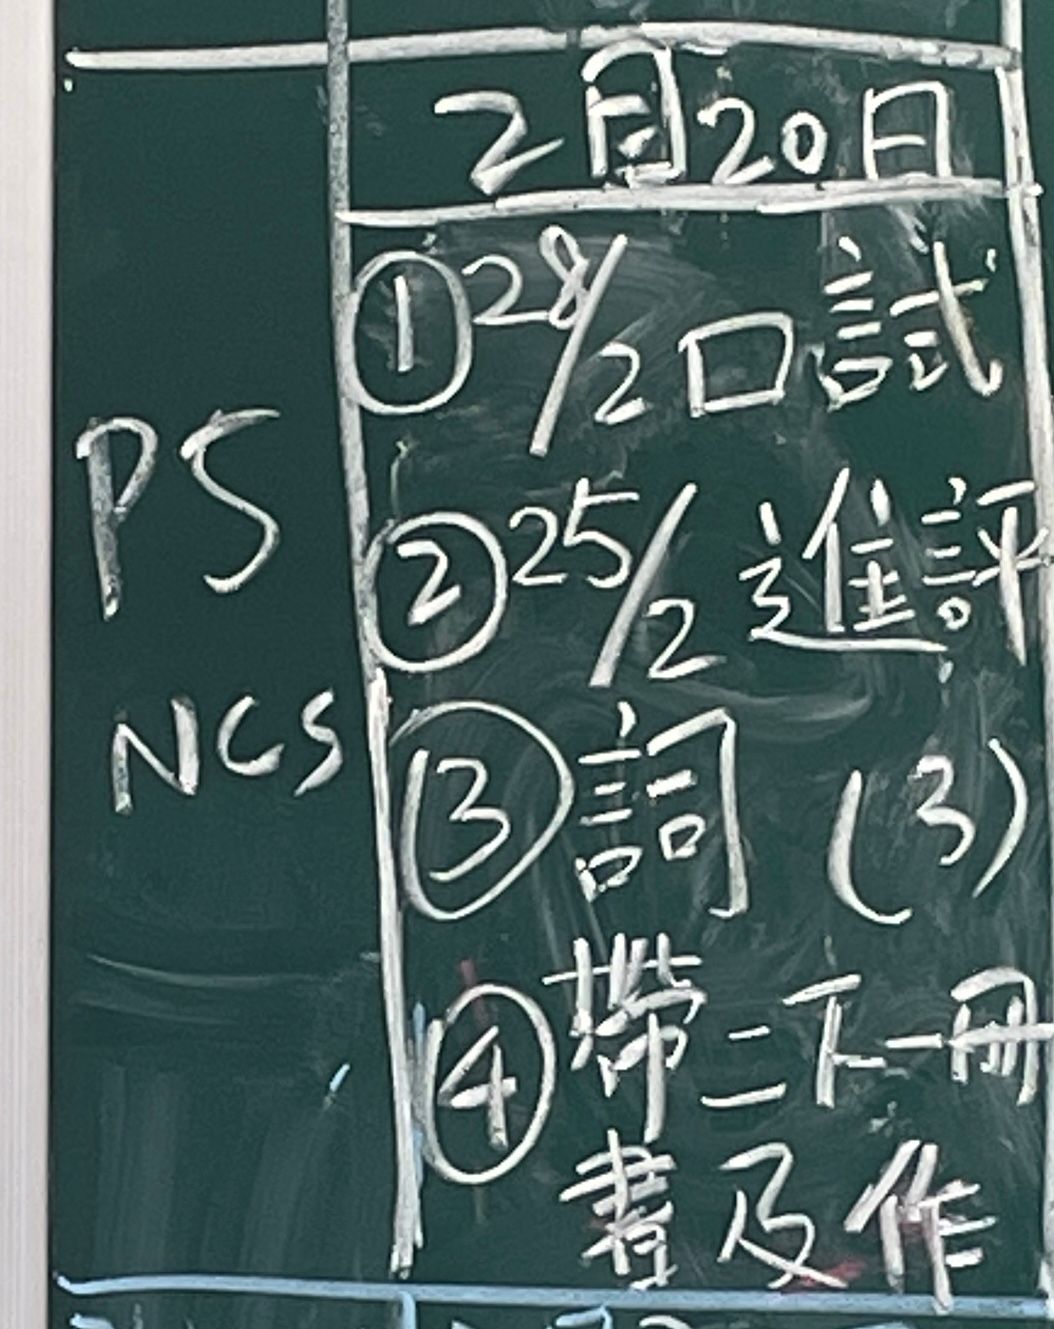 2月20日
① 28/2 口試
PS
② 25/2 進評
NCS
③ 詞 (3)
④ 帶二下一冊
書及作